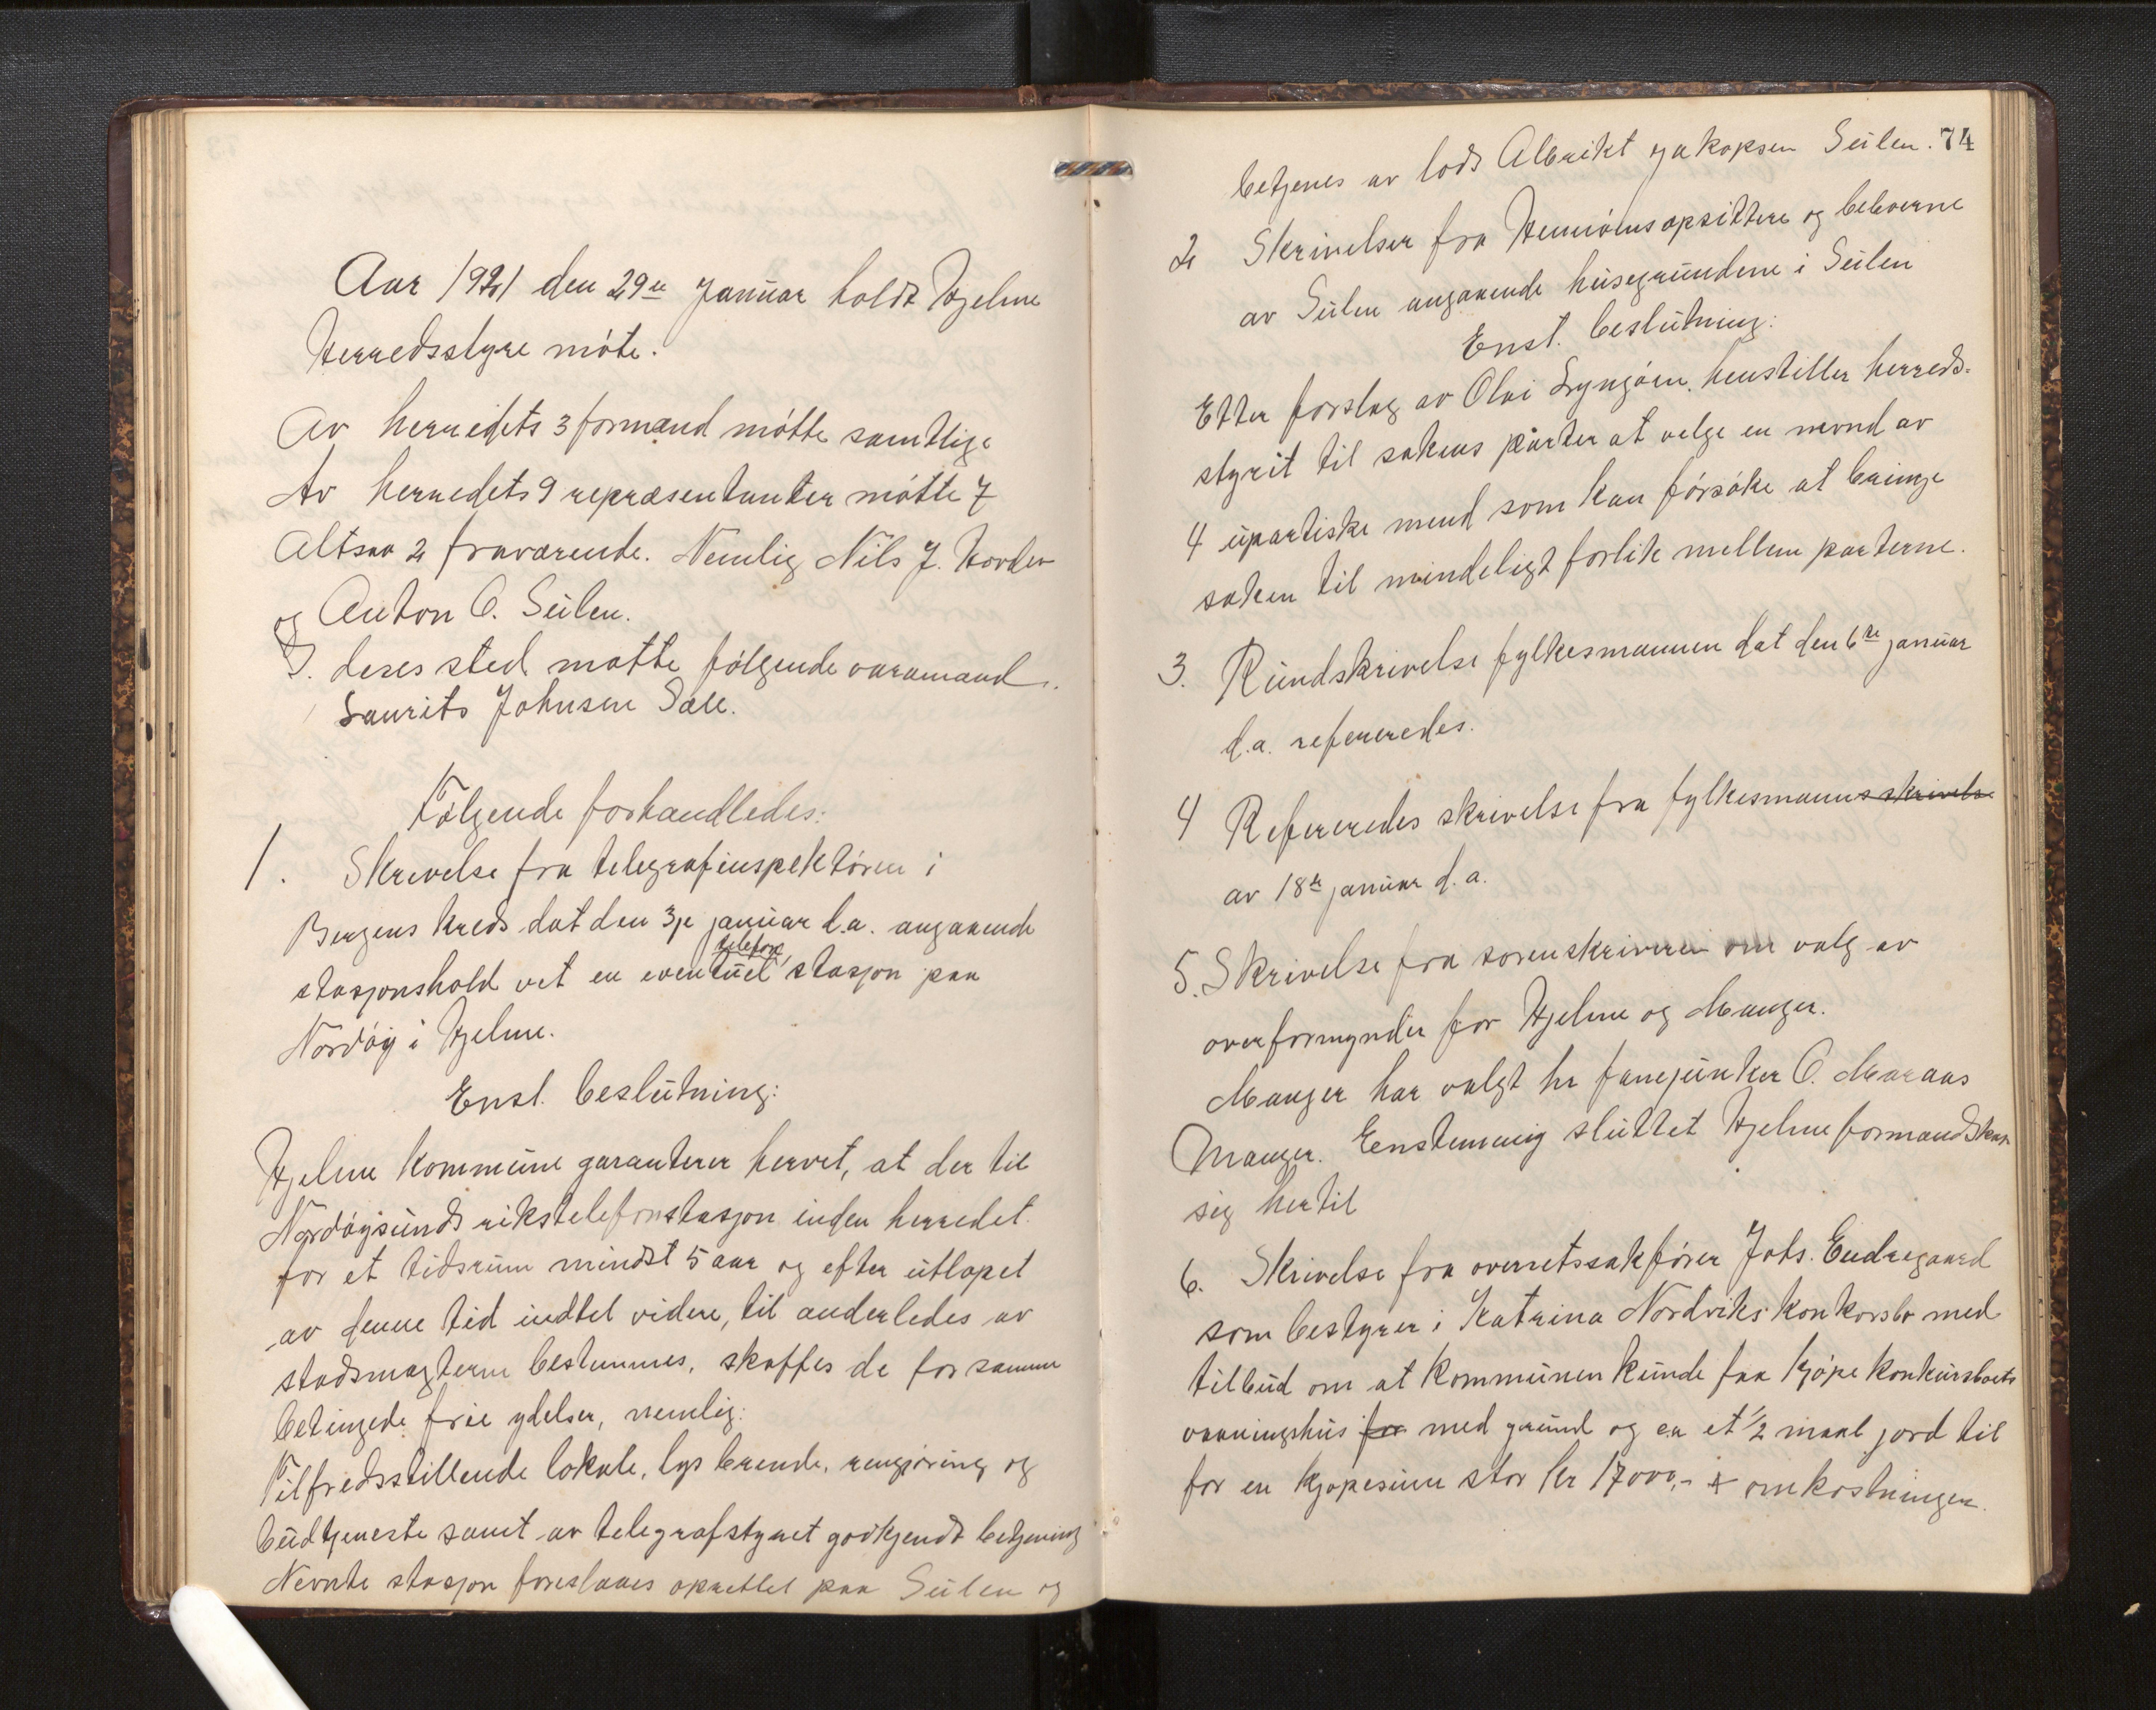 Aar 1921 den 29de Januar holdt Hjelme
Herredsstyre møte.
Av herredets 3 formænd møtte samtlige
Av herredets 9 repræsentanter møtte 7
Altsaa 2 fraværende. Nemlig Nils J. Hordvik
og Anton O. Seilen.
I. deres sted møtte følgende varamænd.
Laurits Johnsen Sæle.
Følgende forhandledes:
1. Skrivelse fra telegrafinspektøren i
Bergens kreds dat den 3je januar d.a. angaaende
telefon
stasjonshold vet en eventuel stasjon paa
Nordøy i Hjelme.
Enst. beslutning:
Hjelme kommune garanterer hervet, at der til
Nordøysunds rikstelefonstasjon inden herredet
for et tidsrum mindst 5 aar og efter utløpet
av denne tid indtel videre, til anderledes av
stadsmagterne bestemmes, skaffes de for samme
betingede frie ydelser, nemlig:
Tilfredsstillende lokale, lys brende, rengjøring og
budtjeneste samt av telegrafstyret godkjendt betjening
Nevnte stasjon foreslaaes oprettet paa Seilen og
74
betjenes av lods Albrikt Jakopsen Seilen.
2 Skrivelser fra opsittere og beboerne
av Seilen angaaende husegrundene i Seilen
Enst. beslutning:
Etter forslag av Olai Lyngøen, henstiller herreds-
styrit til sakens parter at velge en nevnd av
4 upartiske mend som kan førsøke at bringe
saken til mindeligt forlik mellem parterne.
3. Rundskrivelse fylkesmannen dat den 6te januar
d.a. refereredes.
4 Refereredes skrivelse fra fylkesmanns skrivelse
av 18de januar d.a.
5. Skrivelse fra sorenskriveren om valg av
overformynder for Hjelme og Manger.
Manger har valgt hr fanejunker O. Maraas
Manger. Eenstemmig sluttet Hjelme formandskap
sig hertil
6. Skrivelse fra overretssakfører Johs. Endregaard
som bestyrer i Katrina Nordviks konkorsbo med
tilbud om at kommunen kunde faa kjøpe konkursboets
vaaningshus for med grund og ca et 1/2 maal jord til
for en kjøpesum stor kr 17000,- + omkostninger.